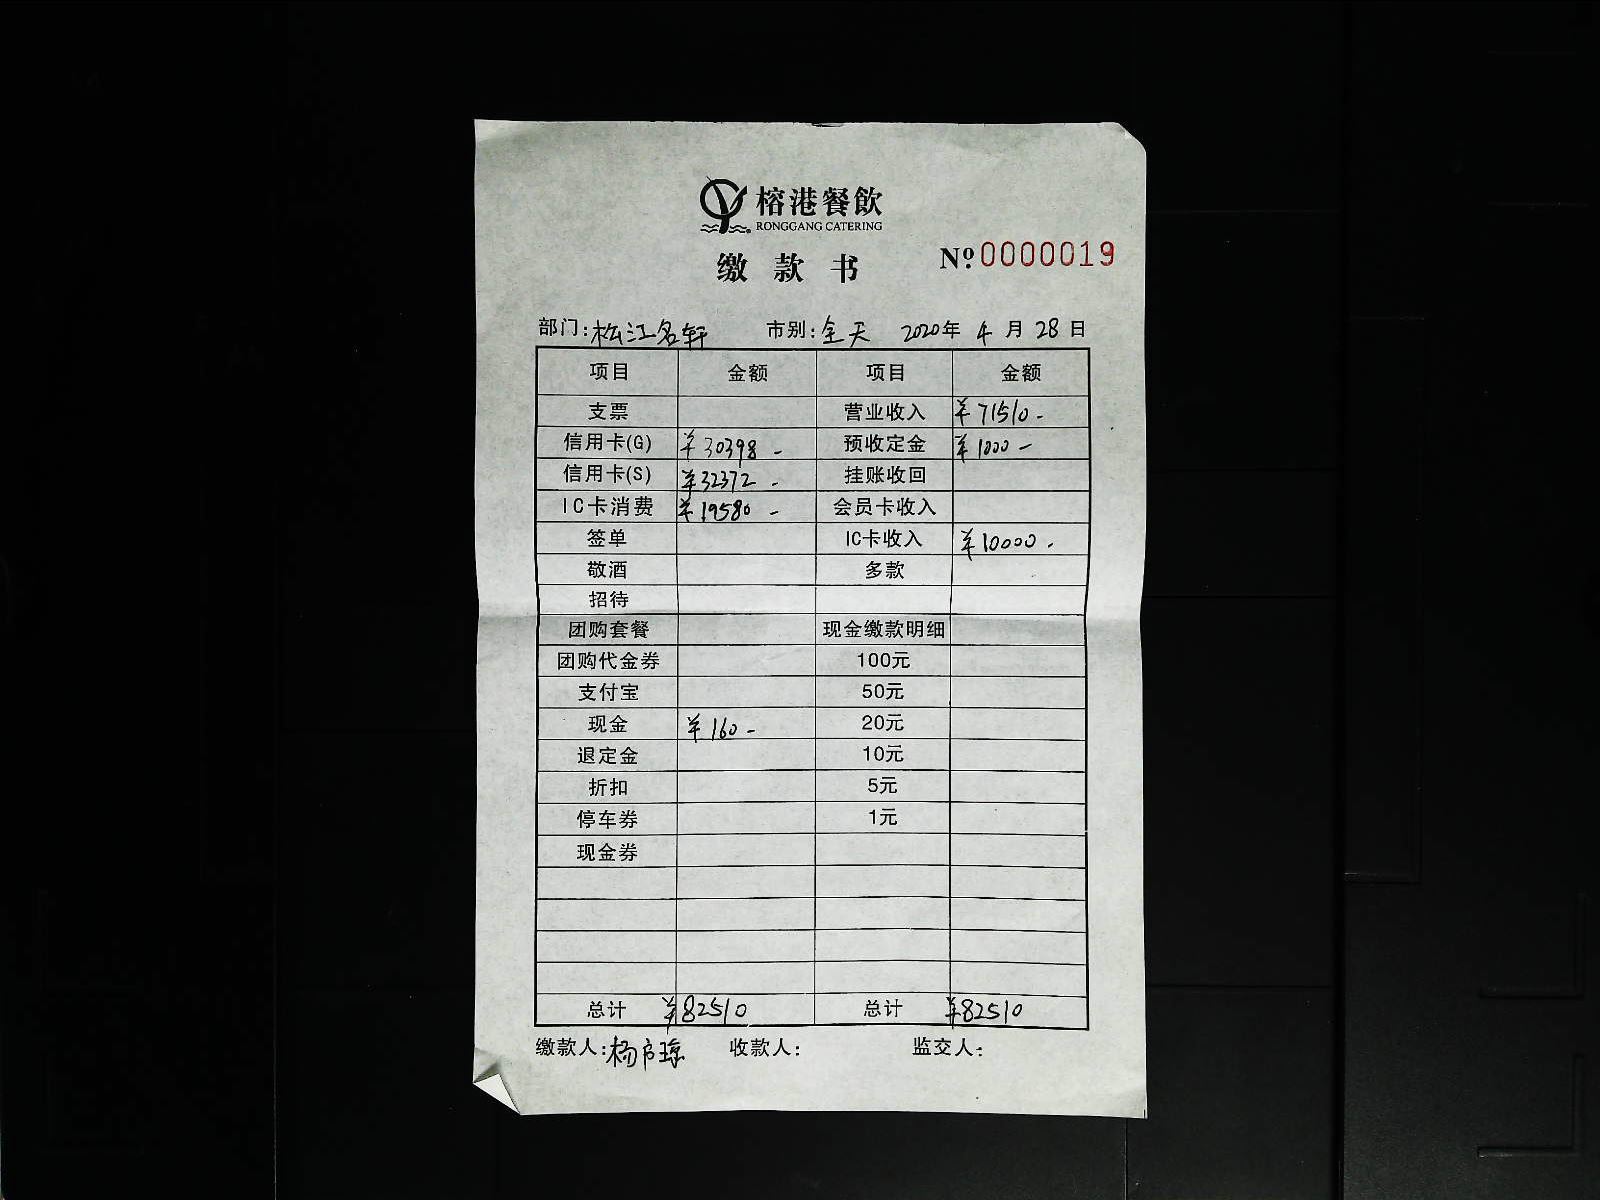 榕港餐飲
RONGGANG CATERING
缴款书 Nº 0000019
部门:松江名轩 市别:全天 2020年 4月 28日
项目 金额 项目 金额
支票 营业收入 ¥71510-
信用卡(G) ¥30398- 预收定金 ¥1000-
信用卡(S) ¥32372- 挂账收回
IC卡消费 ¥19580- 会员卡收入
签单 IC卡收入 ¥10000-
敬酒 多款
招待
团购套餐 现金缴款明细
团购代金券 100元
支付宝 50元
现金 ¥160- 20元
退定金 10元
折扣 5元
停车券 1元
现金券
总计 ¥82510 总计 ¥82510
缴款人: 收款人: 监交人: